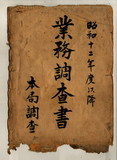 昭和十二年度以降
業務調査書
本局調査